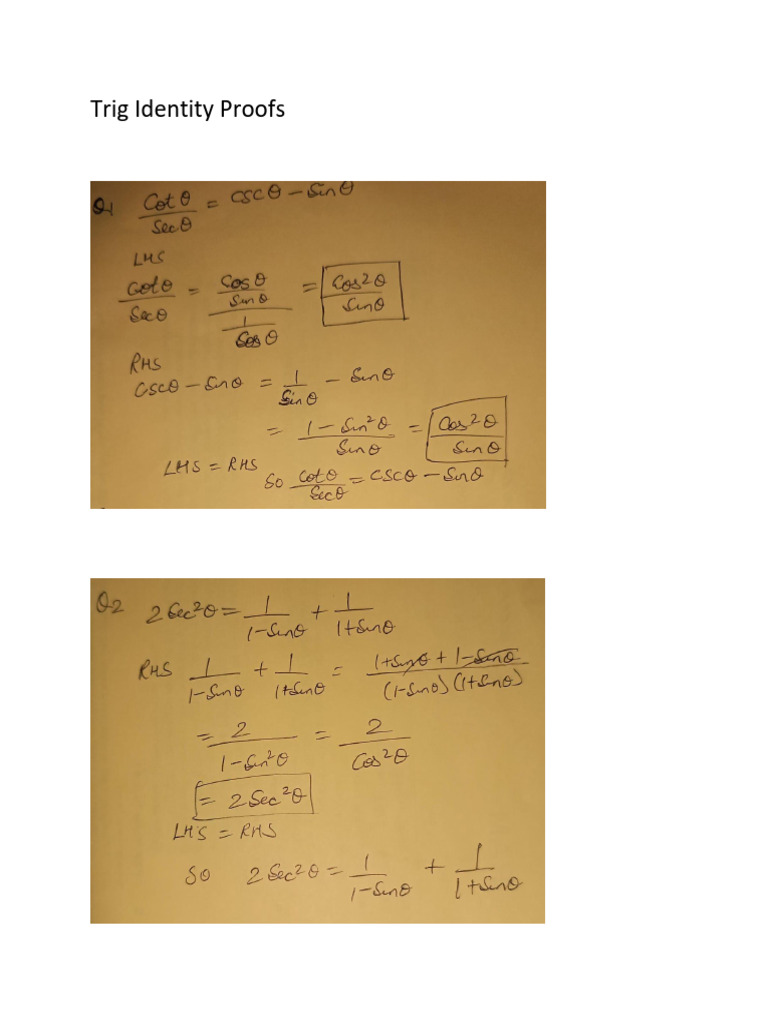 Trig Identity Proofs
Q1 Cotθ/Secθ = CSCθ – Sinθ
LHS
Cotθ/Secθ = (Cosθ/Sinθ)/(1/Cosθ) = Cos²θ/Sinθ
RHS
CSCθ – Sinθ = 1/Sinθ – Sinθ
= (1 – Sin²θ)/Sinθ = Cos²θ/Sinθ
LHS = RHS
So Cotθ/Secθ = CSCθ – Sinθ
Q2 2 Sec²θ = 1/(1–Sinθ) + 1/(1+Sinθ)
RHS 1/(1–Sinθ) + 1/(1+Sinθ) = (1+Sinθ + 1–Sinθ)/((1–Sinθ)(1+Sinθ))
= 2/(1–Sin²θ) = 2/Cos²θ
= 2 Sec²θ
LHS = RHS
So 2 Sec²θ = 1/(1–Sinθ) + 1/(1+Sinθ)